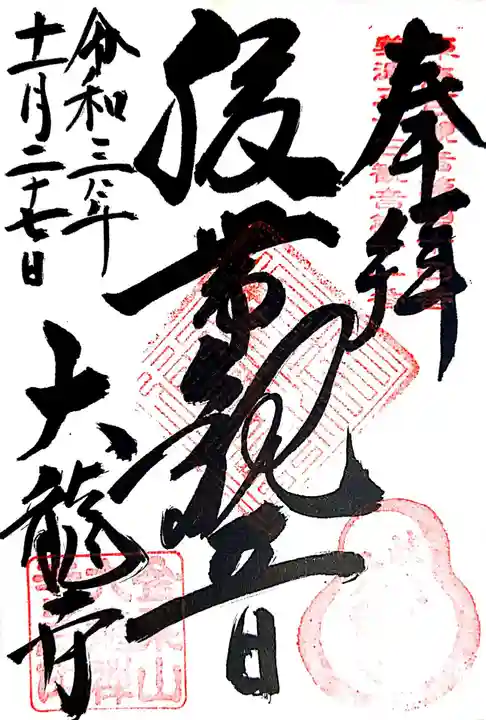 奉拝
腹帯観音
令和三年
十一月二十七日
大龍寺